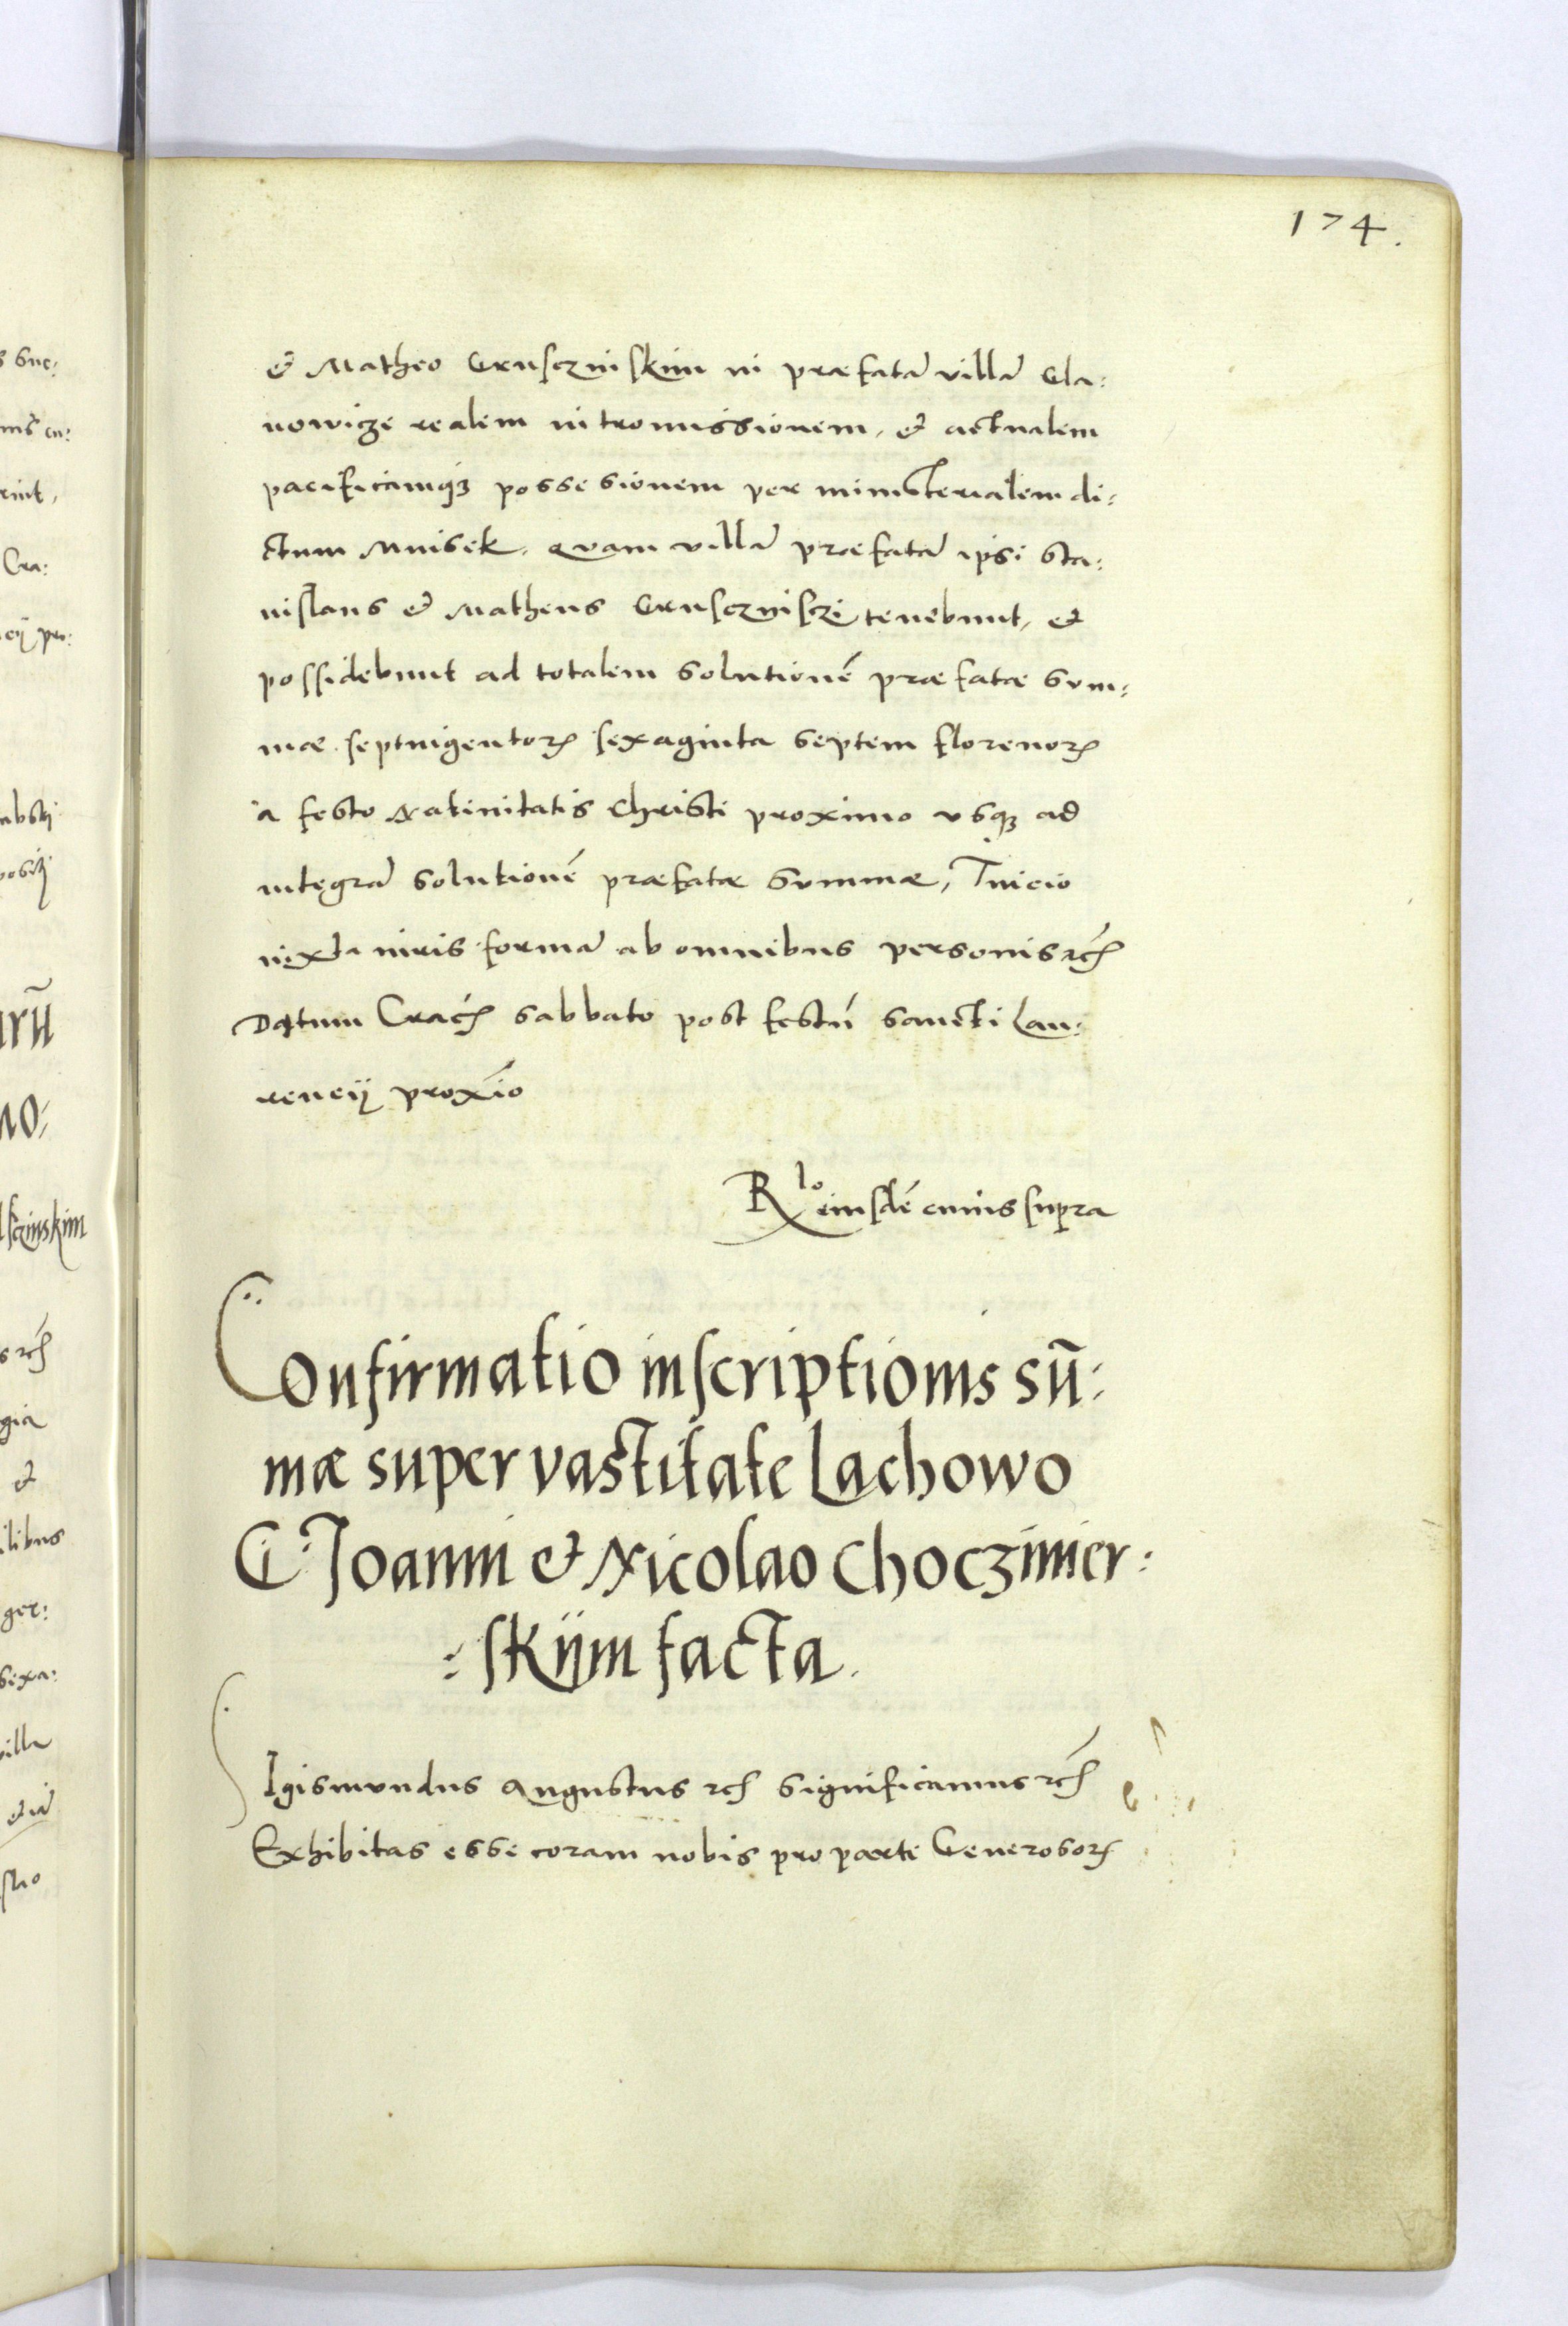 174.
& Matheo Gruscziniskim in præfatã villã Gla:
nowicze realem intromissionem, & actualem
pacificamq₃ possesionem per ministerialem di:
ctum Mnisek. Quam villã præfatã ipsi Sta:
nislaus & Matheus Grusczinisczi tenebunt, et
possidebunt ad totalem solutionẽ præfatæ sum:
mæ septingentoꝝ sexaginta septem florenoꝝ
a festo Nativitatis Christi proximo usq₃ ad
integrã solutionẽ præfatæ summæ, Tuicio
iuxta iuris formã ab omnibus personis ꝛcꝭ
Datum Cracꝭ sabbato post festũ sancti Lau:
rencij proxĩo
Rlo eiusdẽ cuius supra
Confirmatio inscriptionis sũ:
mæ super vastitate Lachowo
G. Joanni & Nicolao Choczimier:
:skijm facta.
Sigismundus Augustus ꝛcꝭ significamus ꝛcꝭ
Exhibitas esse coram nobis pro parte Generosoꝝ